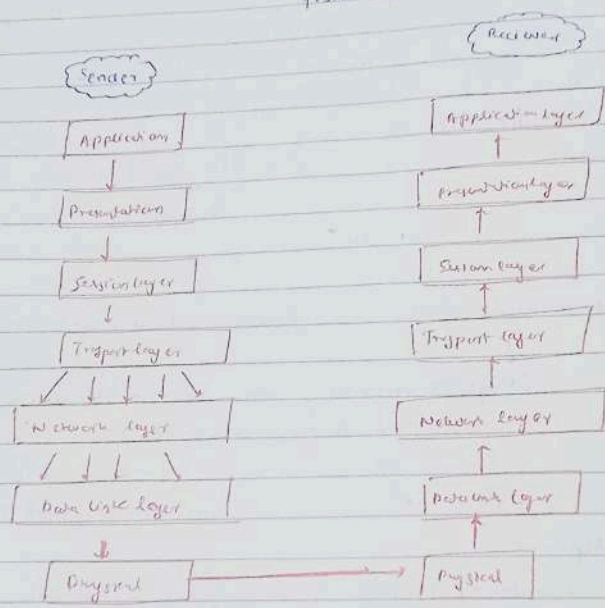 Sender
Application
Presentation
Session layer
Trsport layer
Network layer
Data Link layer
Physical
Reciever
Application layer
Presentation layer
Session layer
Trsport layer
Network layer
Data Link layer
Physical